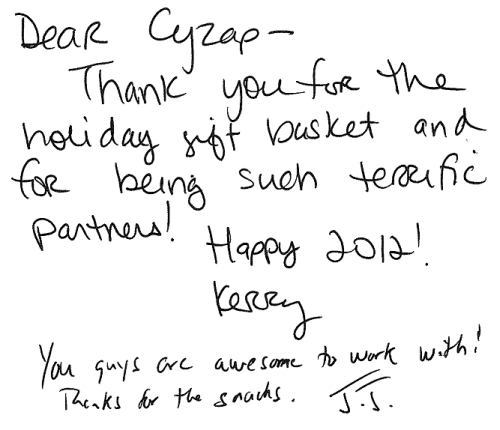 Dear Cyzap-
Thank you for the
holiday gift basket and
for being such terrific
partners!
Happy 2012!
Kerry
You guys are awesome to work with!
Thanks for the snacks. J.J.